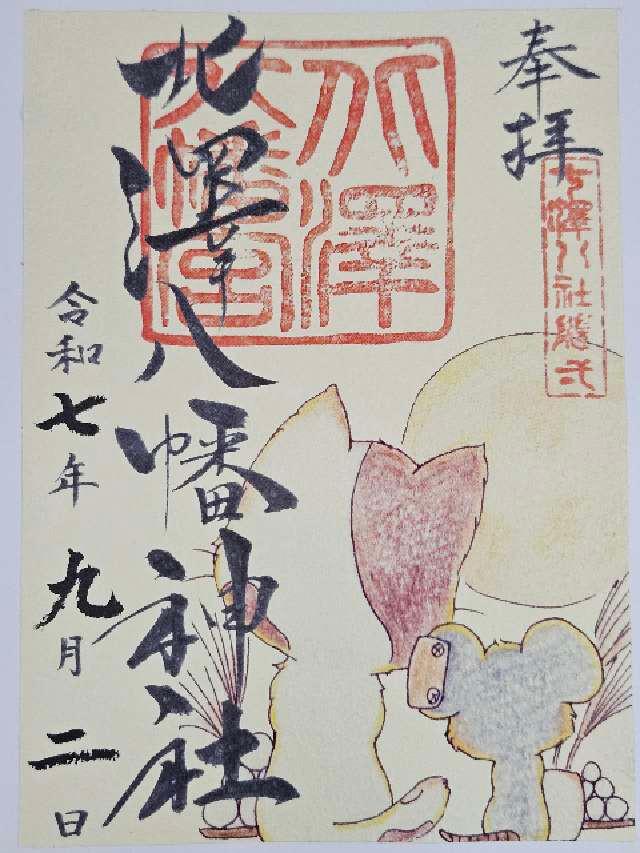 奉拝
七澤八社随弌
北澤
八幡宮
北澤八幡神社
令和七年九月二日